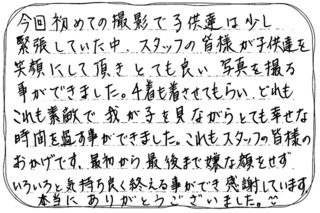 今回初めての撮影で子供達は少し
緊張していた中、スタッフの皆様が子供達を
笑顔にして頂きとても良い写真を撮る
事ができました。4着も着させてもらい、どれも
これも素敵で我が子を見ながらとても幸せな
時間を過す事ができました。これもスタッフの皆様の
おかげです。最初から最後まで嫌な顔をせず
いろいろと気持ち良く終える事ができ感謝しています。
本当にありがとうございました。